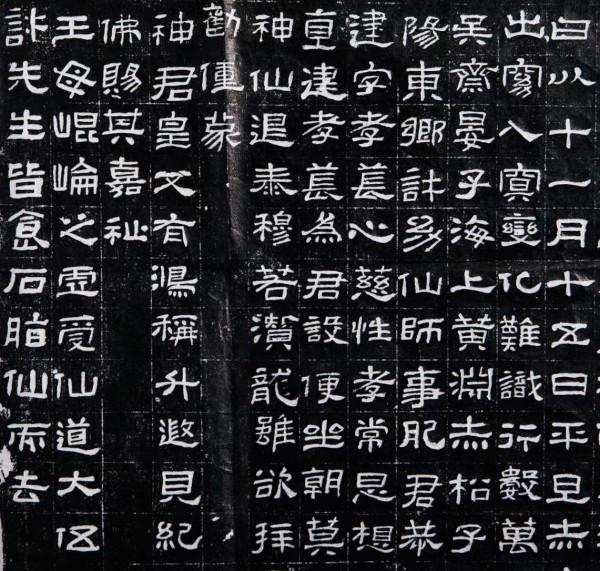 日以十一月十五日平旦赤
出窈入冥變化難識行數萬
吳齋晏子海上黃淵赤松子
陽東鄉許幼仙師事肥君恭
建字孝萇心慈性孝常思想
直建孝萇為君設便坐朝莫
神仙退泰穆若潛龍雖欲拜
勸僮蒙
神君皇又有鴻稱升遐見紀
佛賜其嘉祉
王母崐崘之虛受仙道大伍
許先生皆食石脂仙而去